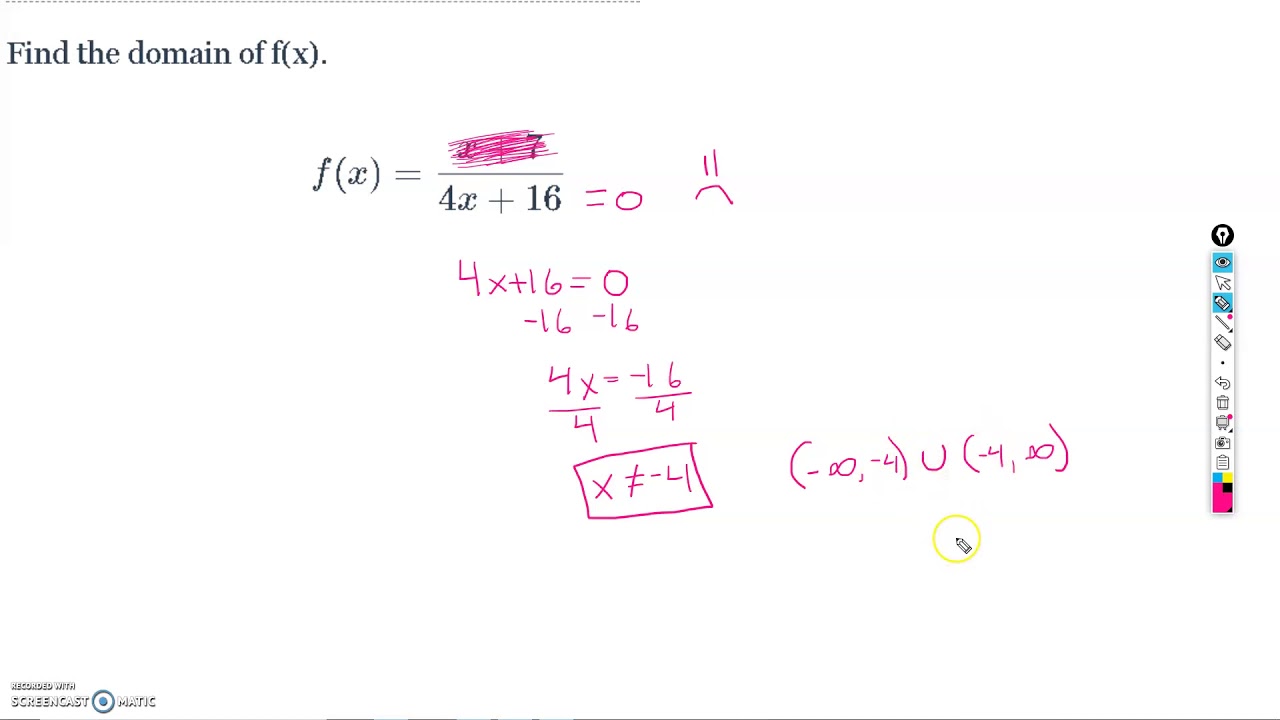 Find the domain of f(x).
x + 7
f(x) =
4x + 16 = 0
4x+16=0
-16 -16
4x = -16
4 4
x ≠ -4
(-∞,-4) ∪ (-4,∞)
RECORDED WITH
SCREENCAST MATIC